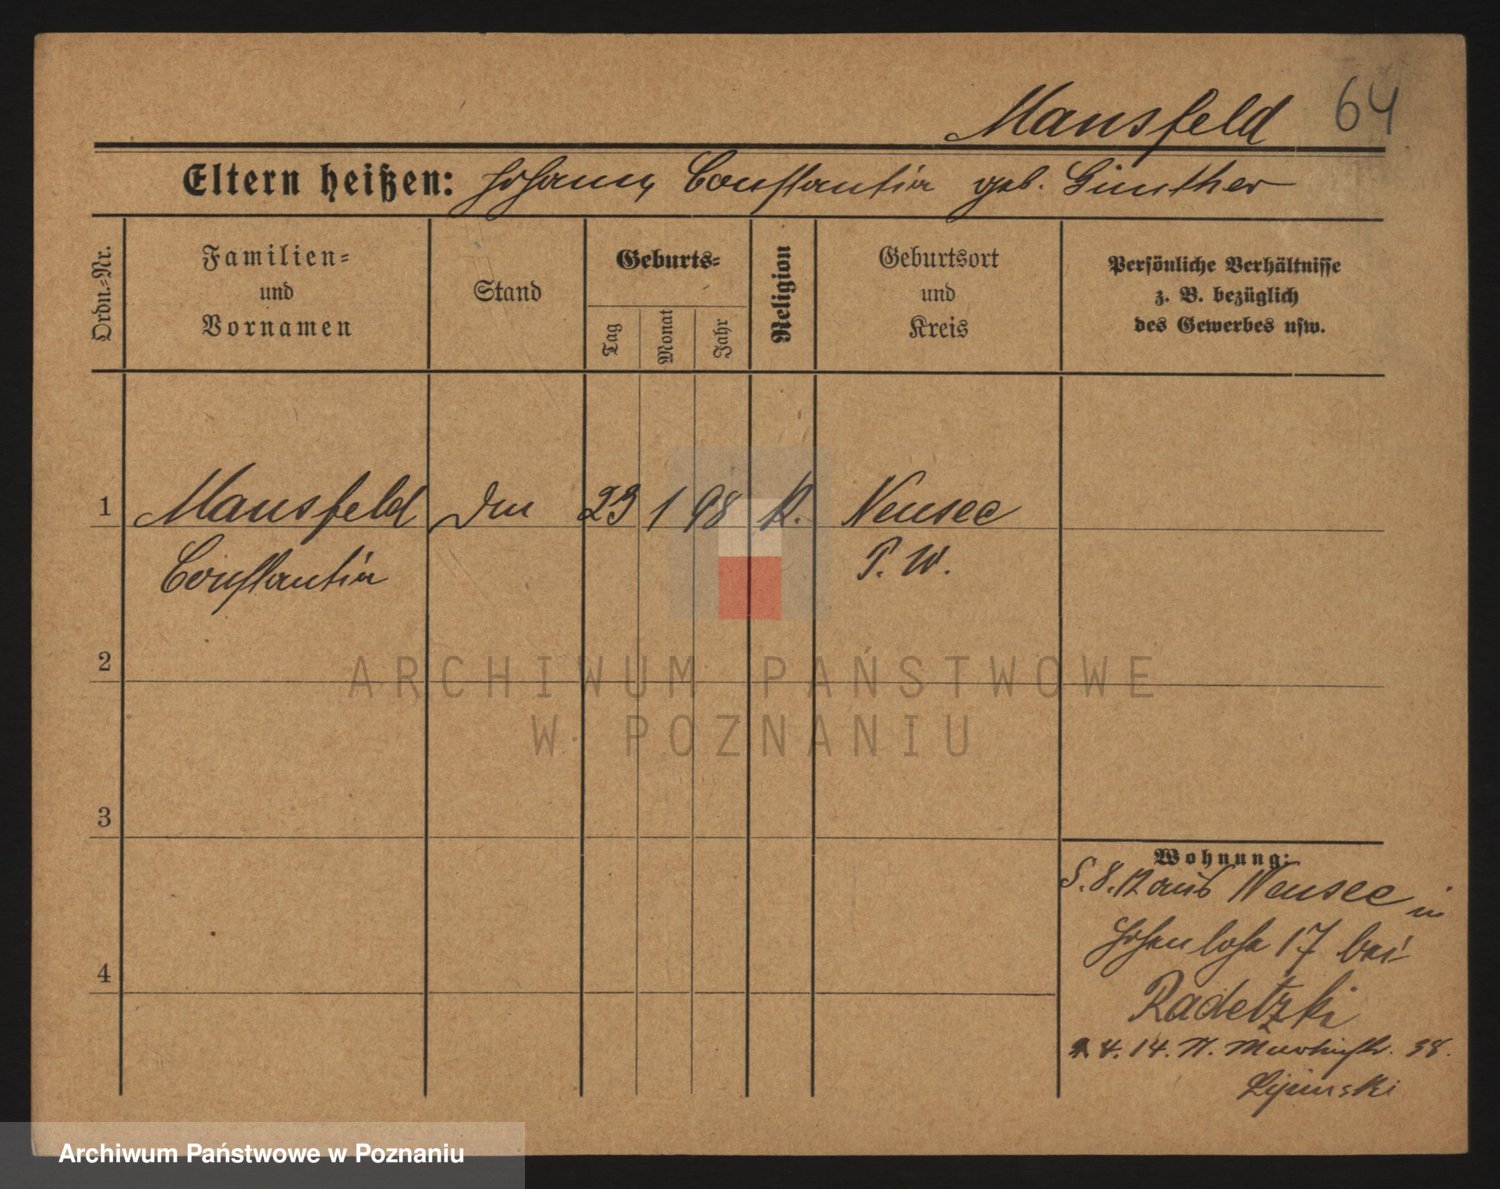 Mansfeld 64
Eltern heißen: Johann, Constantia geb. Günther
Ordn.-Nr.
Familien-
und
Vornamen
Stand
Geburts-
Tag
Monat
Jahr
Religion
Geburtsort
und
Kreis
Persönliche Verhältnisse
z. B. bezüglich
des Gewerbes usw.
1 Mansfeld 23 1 98 K. Neusee
Constantia P. W.
2
3
4
Wohnung:
5.8.12 aus Neusee in
Hohenlohe 17 bei
Radetzki
4. 14. n. Martinstr. 38.
Lipinski
ARCHIWUM PAŃSTWOWE
W POZNANIU
Archiwum Państwowe w Poznaniu